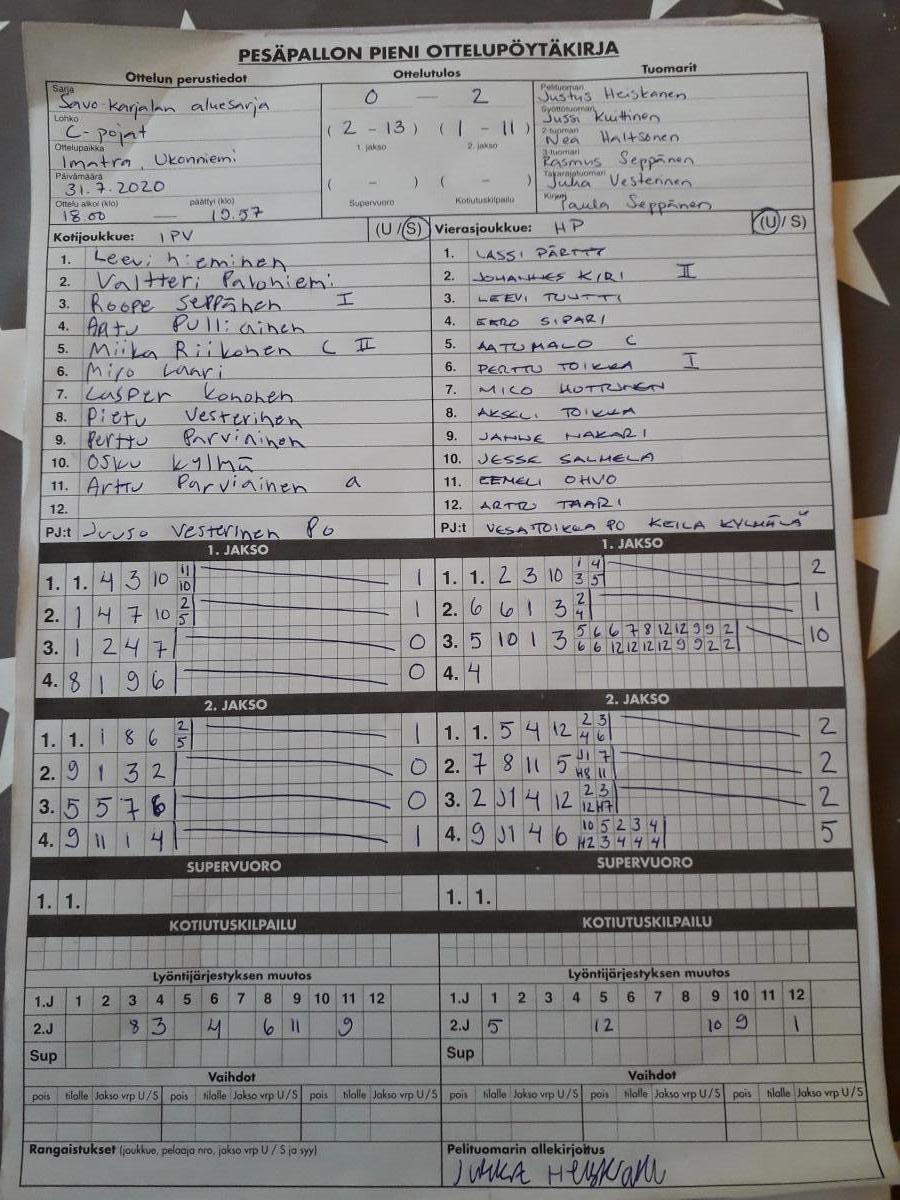 PESÄPALLON PIENI OTTELUPÖYTÄKIRJA
Ottelun perustiedot Ottelutulos Tuomarit
Sarja
Savo-Karjalan aluesarja
Lohko
C-pojat
Ottelupaikka
Imatra, Ukonniemi
Päivämäärä
31.7.2020
Ottelu alkoi (klo) päättyi (klo)
18.00 — 19.57
0 — 2
(2 - 13) (1 - 11)
1. jakso 2. jakso
( - ) ( - )
Supervuoro Kotiutuskilpailu
Pelituomari
Justus Heiskanen
Syöttötuomari
Jussi Kuittinen
2-tuomari
Nea Haltsonen
3-tuomari
Rasmus Seppänen
Takarajatuomari
Juha Vesterinen
Kirjuri
Paula Seppänen
Kotijoukkue: IPV (U/S)
1. Leevi Nieminen
2. Valtteri Paloniemi
3. Roope Seppänen I
4. Aatu Pulliainen
5. Miika Riikonen C II
6. Miro Laari
7. Casper Kononen
8. Pietu Vesterinen
9. Perttu Parviainen
10. Osku Kylmä
11. Arttu Parviainen a
12.
PJ:t Juuso Vesterinen Po
Vierasjoukkue: HP (U/S)
1. LASSI PÄRTTY
2. JOHANNES KIRI II
3. LEEVI TUUTTI
4. EERO SIPARI
5. AATU MALO C
6. PERTTU TOIKKA I
7. MICO HUTTUNEN
8. AKSELI TOIKKA
9. JANNE NAKARI
10. JESSE SALMELA
11. EEMELI OHVO
12. ARTTU TAARI
PJ:t VESA TOIKKA PO KEILA KYLMÄLÄ
1. JAKSO
1. 1. 4 3 10 11 1
10
2. 1 4 7 10 2 1
5
3. 1 2 4 7 0
4. 8 1 9 6 0
1. JAKSO
1. 1. 2 3 10 1 4 2
3 5
2. 6 6 1 3 2 1
4
3. 5 10 1 3 5 6 6 7 8 12 12 9 9 2 10
6 6 12 12 12 12 9 9 2 2
4. 4
2. JAKSO
1. 1. 1 8 6 2 1
5
2. 9 1 3 2 0
3. 5 5 7 6 0
4. 9 11 1 4 1
2. JAKSO
1. 1. 5 4 12 2 3 2
4 6
2. 7 8 11 5 J1 7 2
H8 11
3. 2 J1 4 12 2 3 2
12 H7
4. 9 J1 4 6 10 5 2 3 4 5
H2 3 4 4 4
SUPERVUORO
1. 1.
SUPERVUORO
1. 1.
KOTIUTUSKILPAILU
KOTIUTUSKILPAILU
Lyöntijärjestyksen muutos
1.J 1 2 3 4 5 6 7 8 9 10 11 12
2.J 8 3 4 6 11 9
Sup
Lyöntijärjestyksen muutos
1.J 1 2 3 4 5 6 7 8 9 10 11 12
2.J 5 12 10 9 1
Sup
Vaihdot
pois tilalle Jakso vrp U/S pois tilalle Jakso vrp U/S pois tilalle Jakso vrp U/S
Vaihdot
pois tilalle Jakso vrp U/S pois tilalle Jakso vrp U/S pois tilalle Jakso vrp U/S
Rangaistukset (joukkue, pelaaja nro, jakso vrp U / S ja syy)
Pelituomarin allekirjoitus